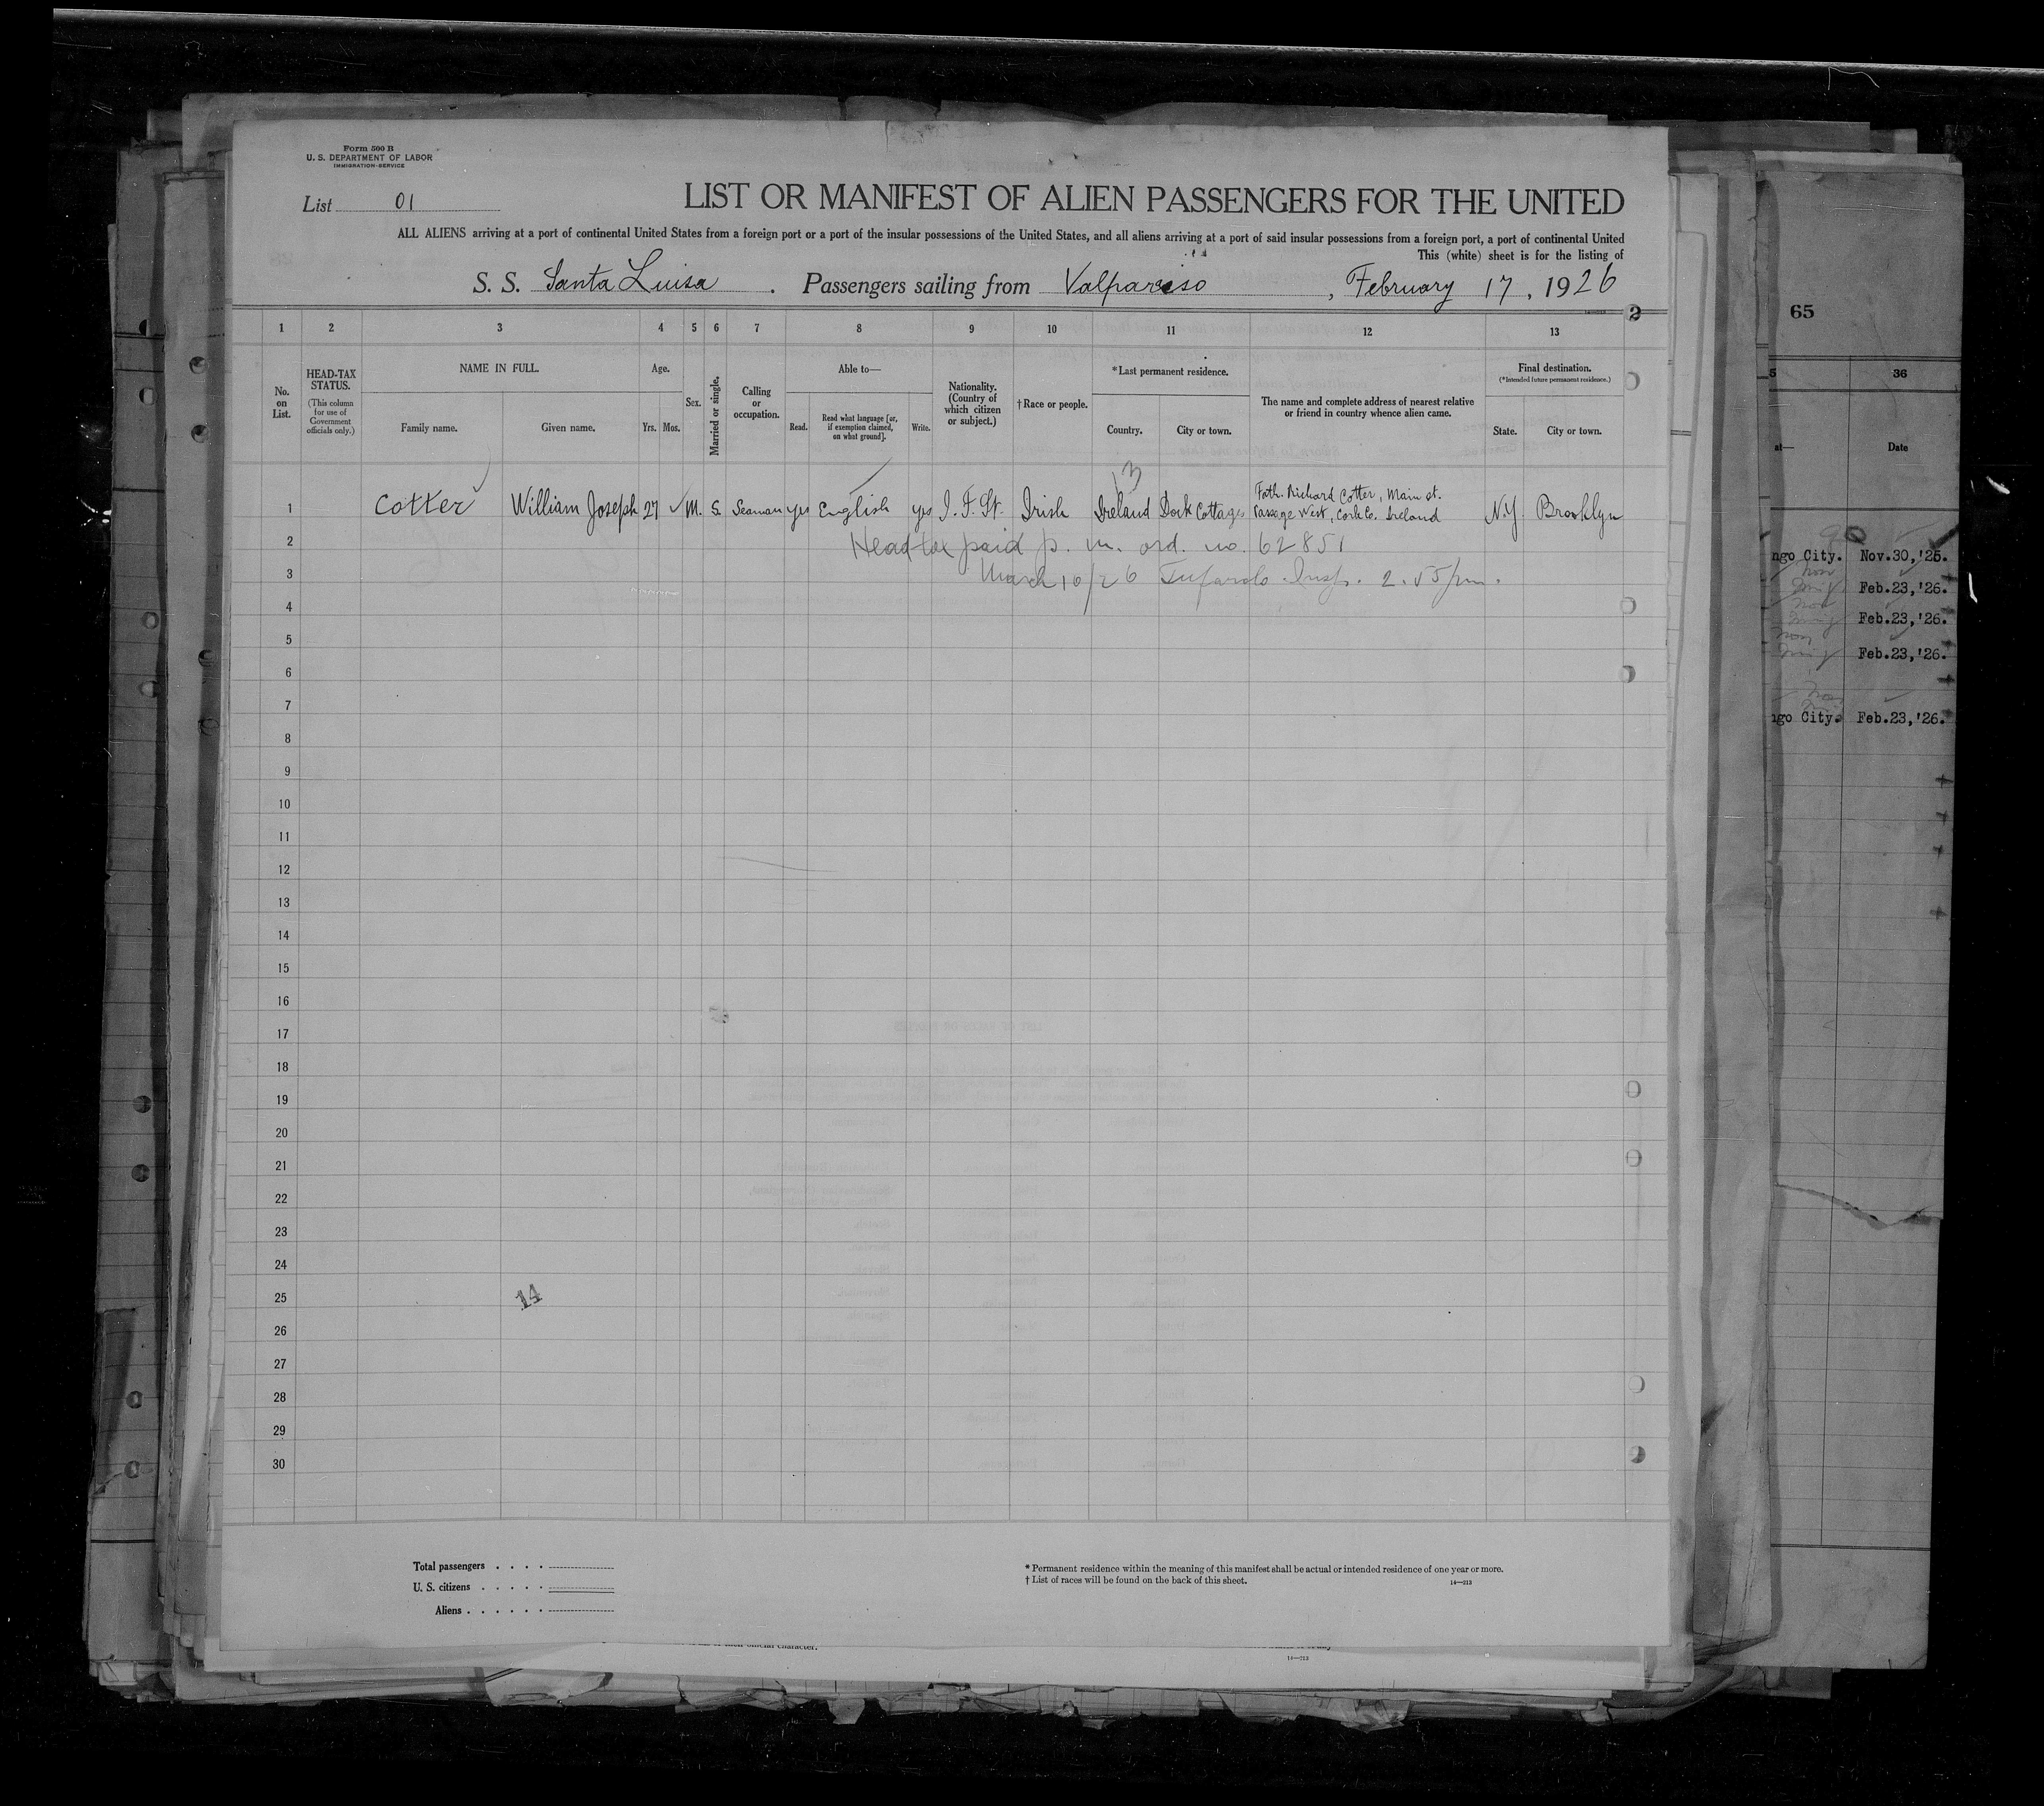 Form 500 B
U. S. DEPARTMENT OF LABOR
IMMIGRATION SERVICE
List 01
LIST OR MANIFEST OF ALIEN PASSENGERS FOR THE UNITED
ALL ALIENS arriving at a port of continental United States from a foreign port or a port of the insular possessions of the United States, and all aliens arriving at a port of said insular possessions from a foreign port, a port of continental United
This (white) sheet is for the listing of
S. S. Santa Luisa . Passengers sailing from Valparaiso , February 17 , 1926
2
1 2 3 4 5 6 7 8 9 10 11 12 13
No. on List.
HEAD-TAX STATUS.
(This column for use of Government officials only.)
NAME IN FULL.
Family name.
Given name.
Age.
Yrs. Mos.
Sex.
Married or single.
Calling or occupation.
Able to—
Read.
Read what language [or, if exemption claimed, on what ground].
Write.
Nationality. (Country of which citizen or subject.)
† Race or people.
*Last permanent residence.
Country.
City or town.
The name and complete address of nearest relative or friend in country whence alien came.
Final destination.
(*Intended future permanent residence.)
State.
City or town.
1 Cotter William Joseph 27 M. S. Seaman yes English yes I. F. St. Irish Ireland Dock Cottages Fath. Richard Cotter, Main st. Passage West, Cork Co. Ireland N.Y. Brooklyn
2 Head tax paid p. m. ord. no. 62851
3 March 10/26 Insp. 2.55 pm.
4
5
6
7
8
9
10
11
12
13
14
15
16
17
18
19
20
21
22
23
24
25
14
26
27
28
29
30
Total passengers . . . .
U. S. citizens . . . . .
Aliens . . . . . .
* Permanent residence within the meaning of this manifest shall be actual or intended residence of one year or more.
† List of races will be found on the back of this sheet.
14—213
official character.
14—213
65
5 36
at— Date
ngo City. Nov.30,'25.
Feb.23,'26.
Feb.23,'26.
Feb.23,'26.
ngo City. Feb.23,'26.